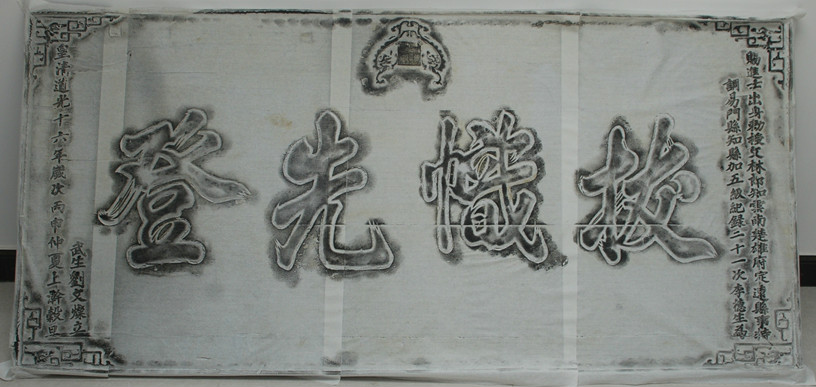 賜進士出身勅授文林郎知雲南楚雄府定遠縣事特
調易門縣知縣加五級紀錄二十一次李德生為
拔幟先登
皇清道光十六年歲次丙申仲夏上澣穀旦
武生劉文燦立